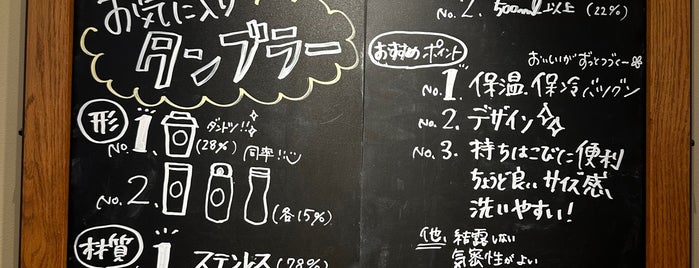 お気に入り
タンブラー
形
No.1 ダントツ!!
(28%)
同率!!
No.2
(各15%)
材質
1 ステンレス(78%)
No.2. 500ml以上 (22%)
おすすめポイント
おいしいがずっとつづくー
No.1 保温、保冷バツグン
No.2. デザイン
No.3. 持ちはこびに便利
ちょうど良いサイズ感、
洗いやすい!
他、結露しない
気密性がよい